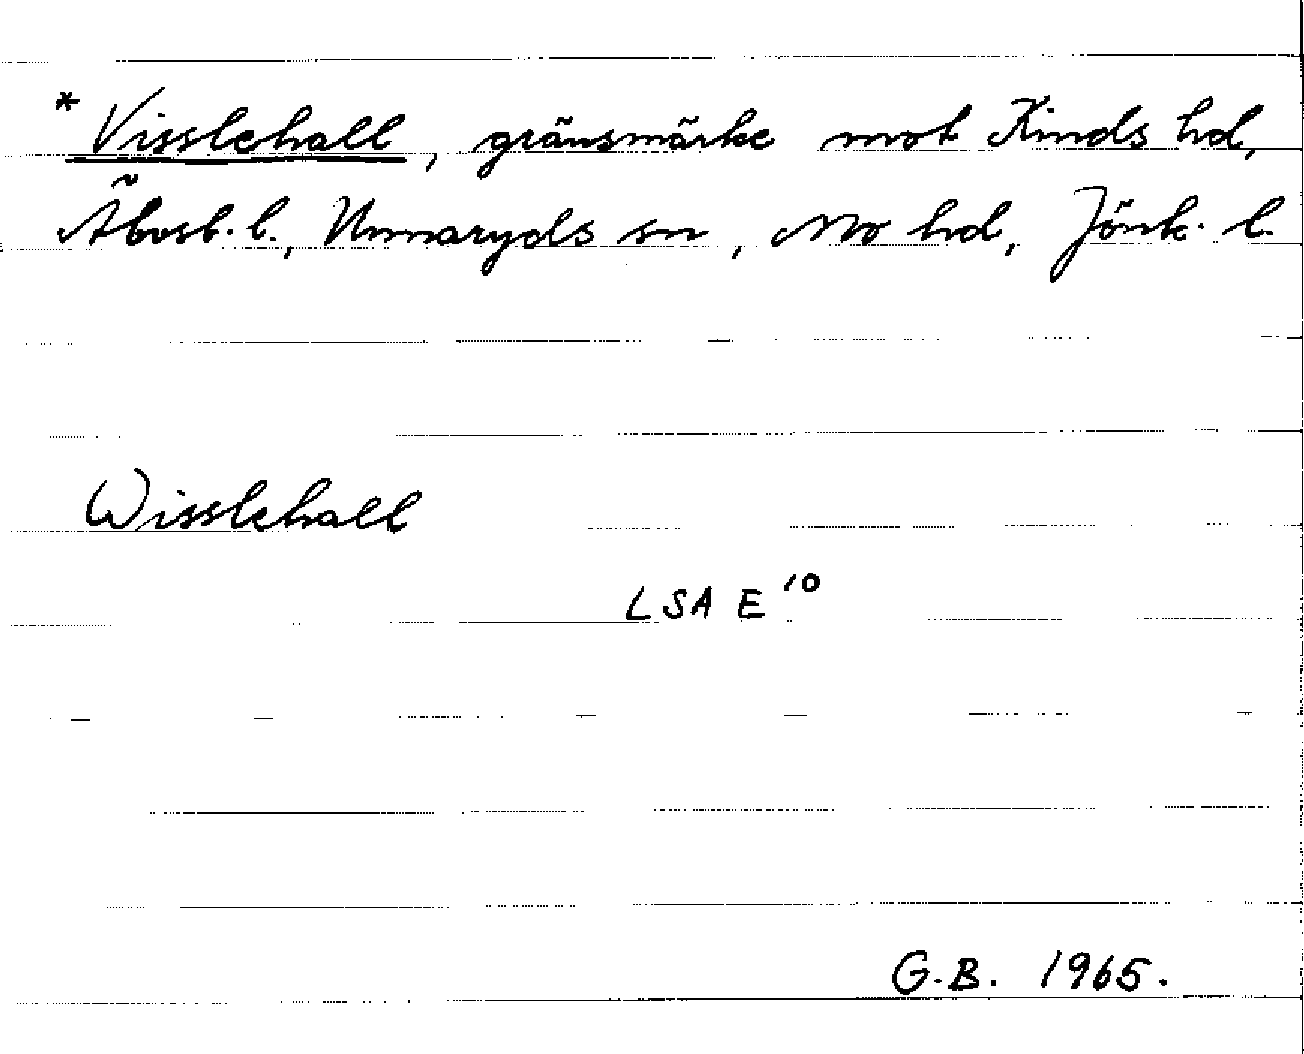 * Visslehall, gränsmärke mot Kinds hd,
Älvsb. l., Unnaryds sn, Mo hd, Jönk. l.
Wisslehall
LSA E¹⁰
G.B. 1965.